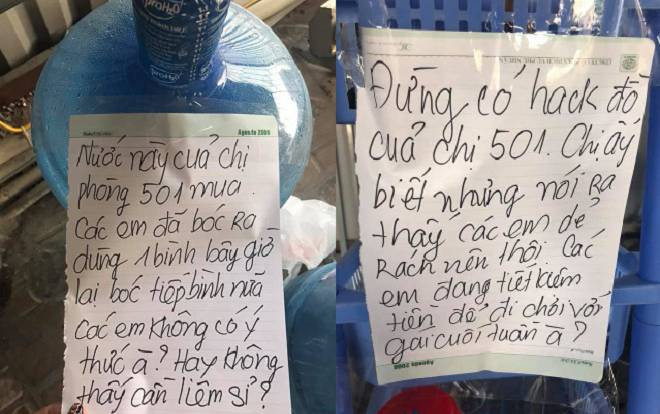 ProH2O
Agenda 2008
Nước này cuả chị
phòng 501 mua.
Các em đã bóc Ra
dùng 1 bình bây giờ
lại bóc tiếp bình nữa
Các em không có ý
thức à? Hay không
thấy cắn liêm sỉ?
Đừng có hack đồ
cuả chị 501. Chị ấy
biết nhưng nói Ra
thấy các em dể
Rách nên thôi Các
em đang tiết kiệm
tiền để đi chơi với
gái cuối tuần à?
Agenda 2008